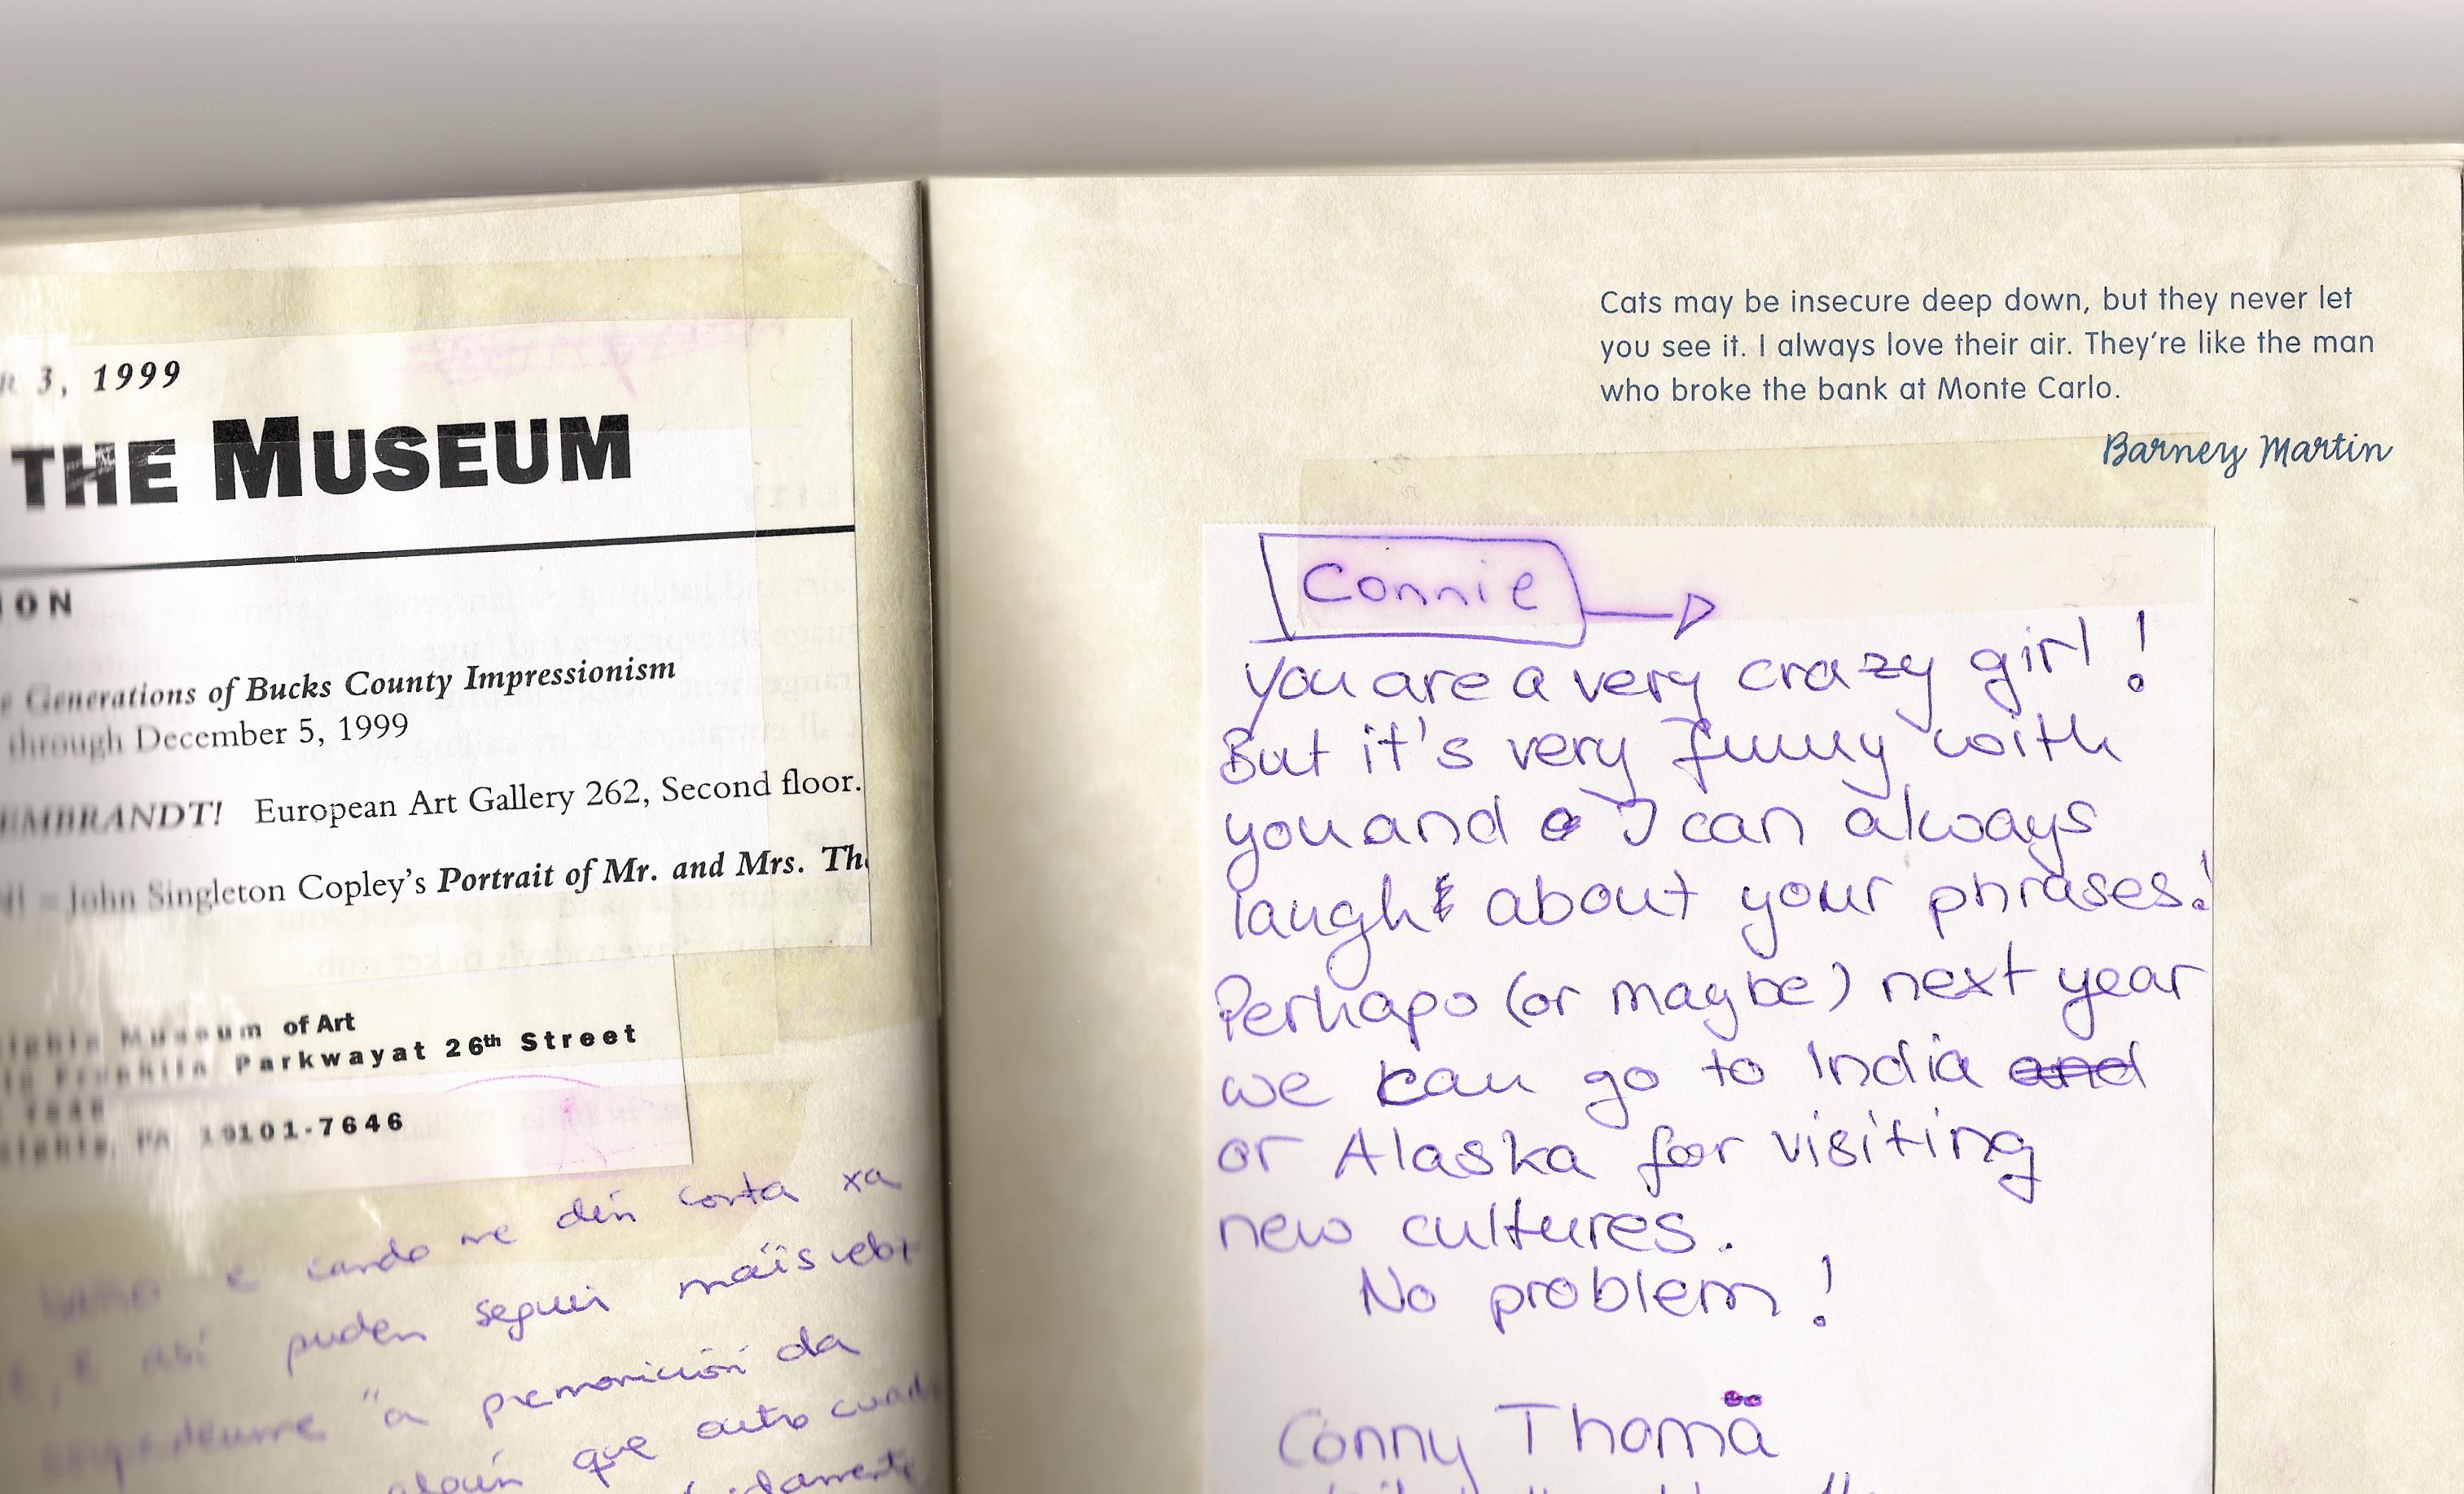 3, 1999
THE MUSEUM
ION
Generations of Bucks County Impressionism
through December 5, 1999
EMBRANDT! European Art Gallery 262, Second floor.
John Singleton Copley's Portrait of Mr. and Mrs. Th
Museum of Art
Parkwayat 26th Street
PA 19101-7646
e cando me din corta xa
así puden seguir máis
"a premonición da
que outro
Cats may be insecure deep down, but they never let
you see it. I always love their air. They're like the man
who broke the bank at Monte Carlo.
Barney Martin
Connie
You are a very crazy girl!
But it's very funny with
you and I can always
laugh about your phrases!
Perhaps (or maybe) next year
we can go to India and
or Alaska for visiting
new cultures.
No problem!
Conny Thomä